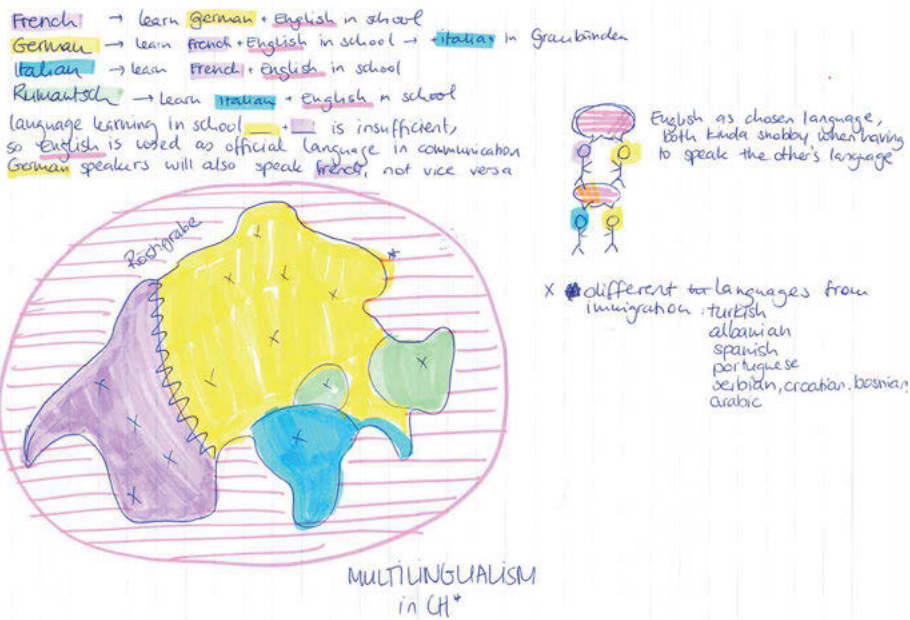 French → learn German + English in school
German → learn French + English in school → + Italian in Graubünden
Italian → learn French + English in school
Rumantsch → learn Italian + English n school
language learning in school __ + __ is insufficient,
so English is used as official language in communication
German speakers will also speak French, not vice versa
English as chosen language,
both kinda snobby when having
to speak the other's language
Röstigrabe
x different languages from
immigration : turkish
albanian
spanish
portuguese
serbian, croatian, bosnian,
arabic
MULTILINGUALISM
in CH*